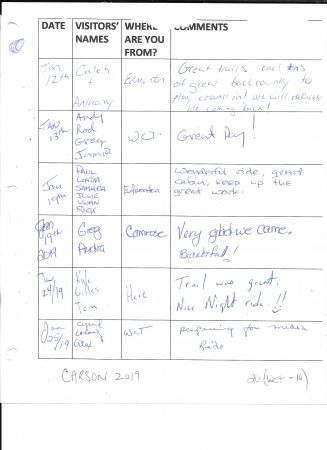 DATE VISITORS' NAMES WHERE ARE YOU FROM? COMMENTS
Jan 12th
Caleb
+
Anthony
Edmonton
Great trails and tons
of great backcountry to
play around in! We will definitely
be coming back!
JAN 13th
Andy
Rod
Greg
Jennie
WCT
Great Day!
Jan 19th
PAUL
LINDA
SAMMER
JULIE
EWAN
RICK
Edmonton
Wonderful ride, great
cabin, keep up the
great work.
Jan
19th
2019
Greg
Audra
Camrose
Very glad we came.
Beautiful!
24/19
Kyle
Giles
Tom
Here
Trail was great.
Nice Night ride.!!
Jan
25/19
WCT
preparing for media
Ride
CARSON 2019
20 (WCT-10)